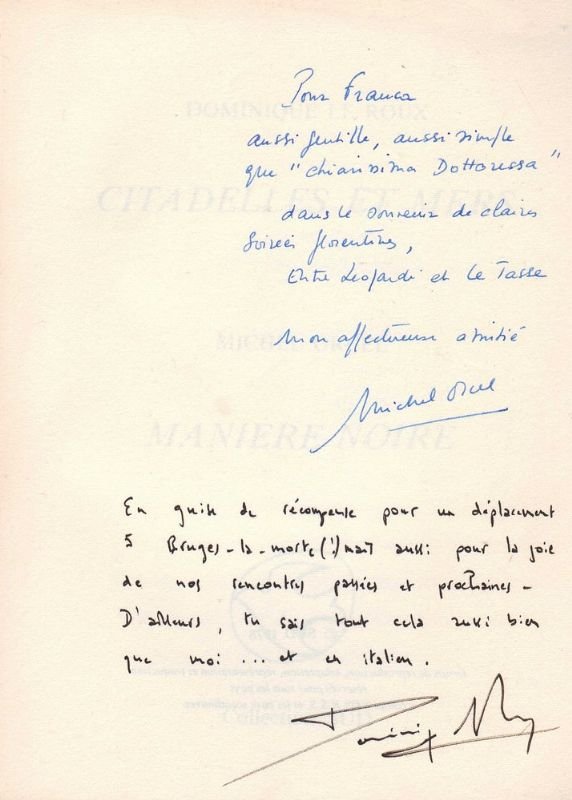 Pour Franca
aussi gentille, aussi simple
que "chiarissima Dottoressa"
dans le souvenir de claires
soirées florentines,
Entre Léopardi et Le Tasse
Mon affectueuse amitié
Michel Orcel
En guise de récompense pour un déplacement
à Bruges-la-morte (!) mais aussi pour la joie
de nos rencontres passées et prochaines -
D'ailleurs, tu sais tout cela aussi bien
que moi ... et en italien.
Dominique
DOMINIQUE LE ROUX
CITADELLES ET MERS
MICHEL ORCEL
MANIERE NOIRE